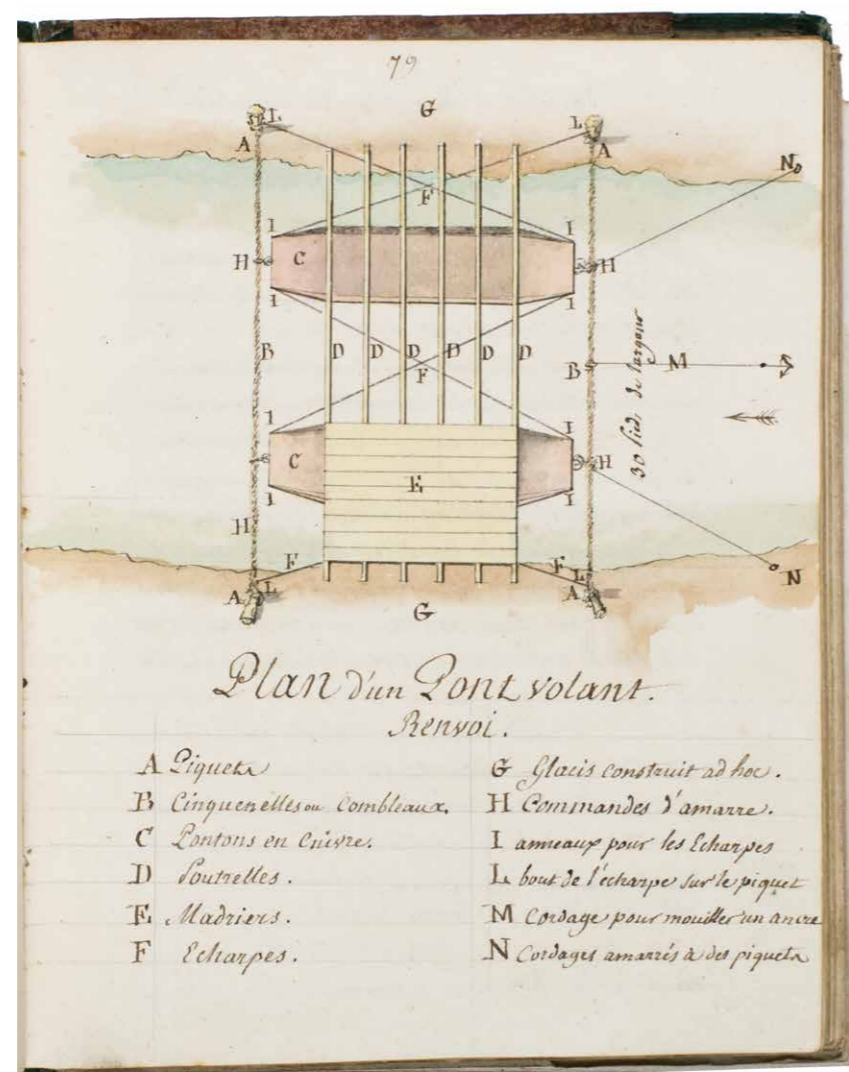 79
L G L
A A
N
F
I I
H C H
I I
B D D D D D D
30 Pieds de largeur
M
F
B
I I
C E H
I I
H
F F
L L N
A A
G
Plan d'un Pont volant.
Renvoi.
A Piquets
B Cinquenelles ou Combleaux.
C Pontons en Cuivre.
D Poutrelles.
E Madriers.
F Echarpes.
G Glacis construit ad hoc.
H Commandes d'amarre.
I anneaux pour les Echarpes
L bout de l'écharpe sur le piquet
M Cordage pour mouiller un ancre
N Cordages amarrés à des piquets